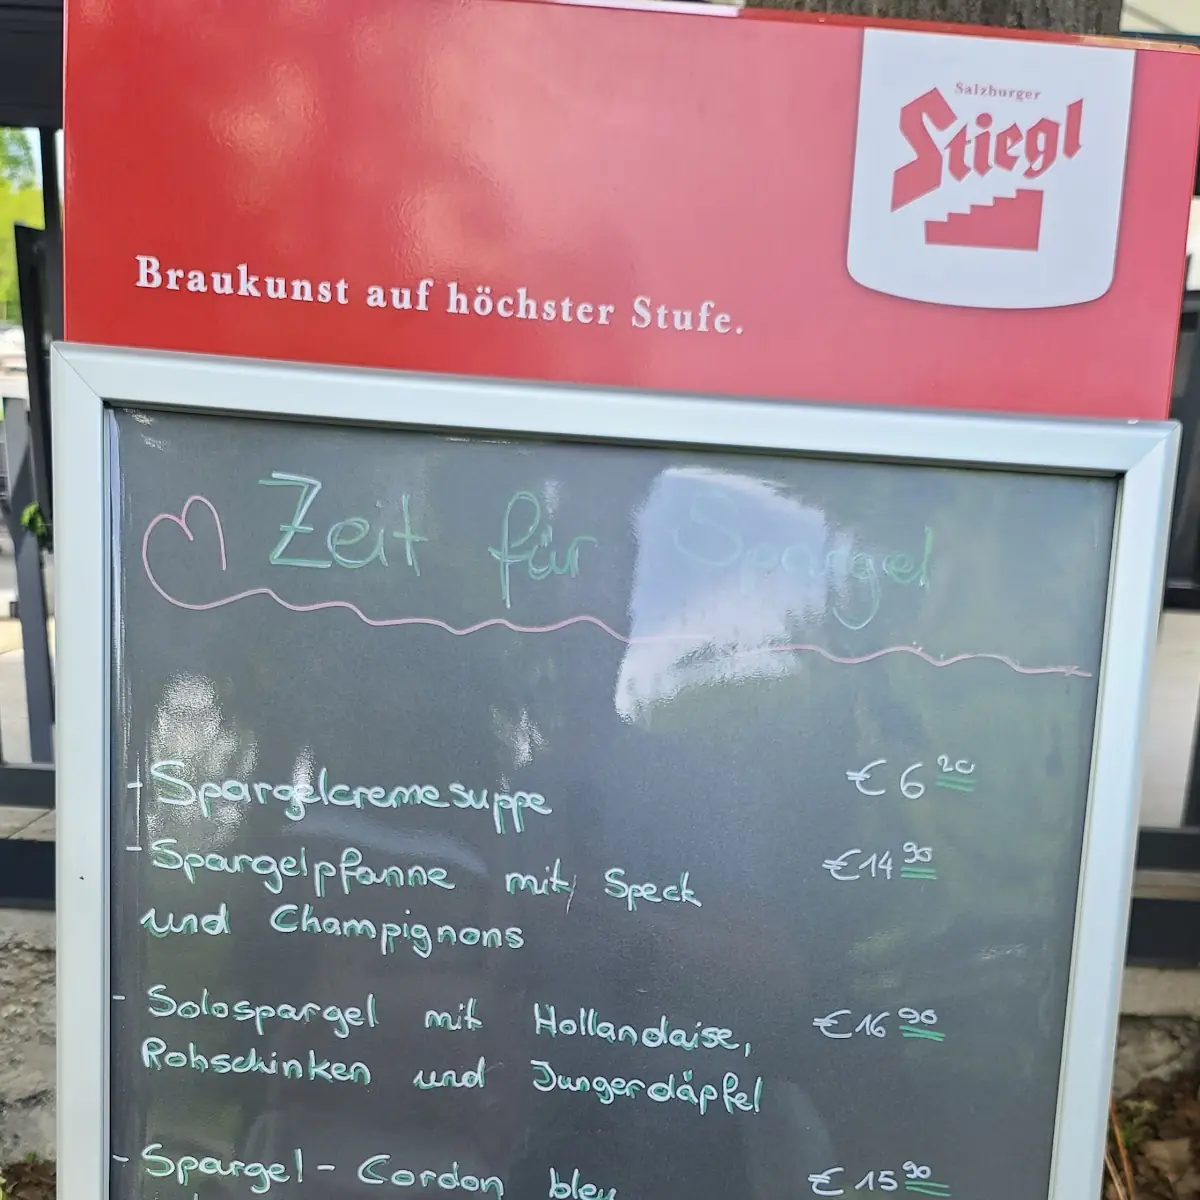 Salzburger
Stiegl
Braukunst auf höchster Stufe.
Zeit für Spargel
- Spargelcremesuppe € 6 20
- Spargelpfanne mit Speck € 14 90
und Champignons
- Solospargel mit Hollandaise, € 16 90
Rohschinken und Jungerdäpfel
- Spargel - Cordon bleu € 15 90